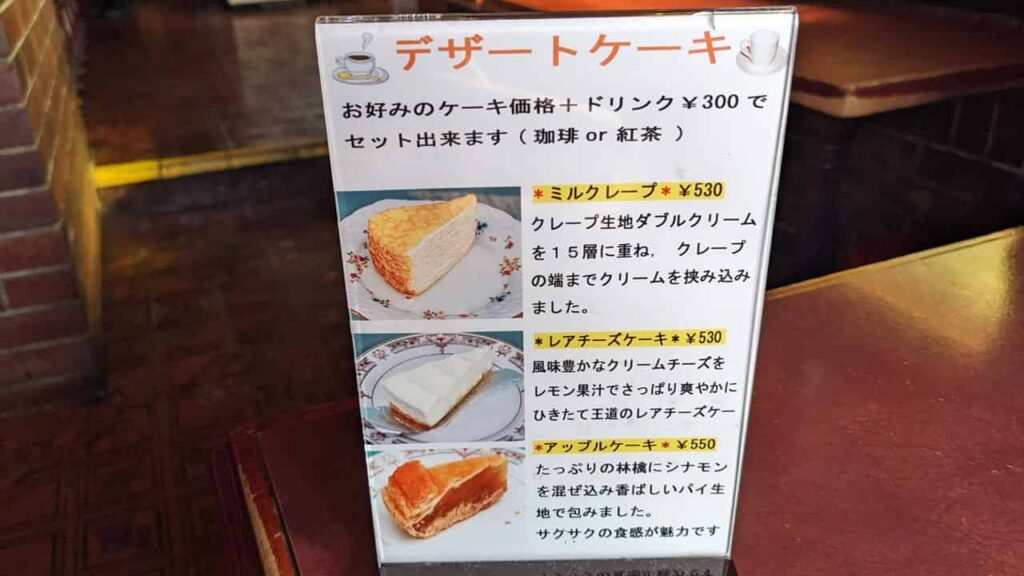 デザートケーキ
お好みのケーキ価格＋ドリンク￥300で
セット出来ます（珈琲 or 紅茶 ）
*ミルクレープ* ￥530
クレープ生地ダブルクリーム
を１５層に重ね， クレープ
の端までクリームを挟み込み
ました。
*レアチーズケーキ* ￥530
風味豊かなクリームチーズを
レモン果汁でさっぱり爽やかに
ひきたて王道のレアチーズケー
*アップルケーキ* ￥550
たっぷりの林檎にシナモン
を混ぜ込み香ばしいパイ生
地で包みました。
サグサクの食感が魅力です